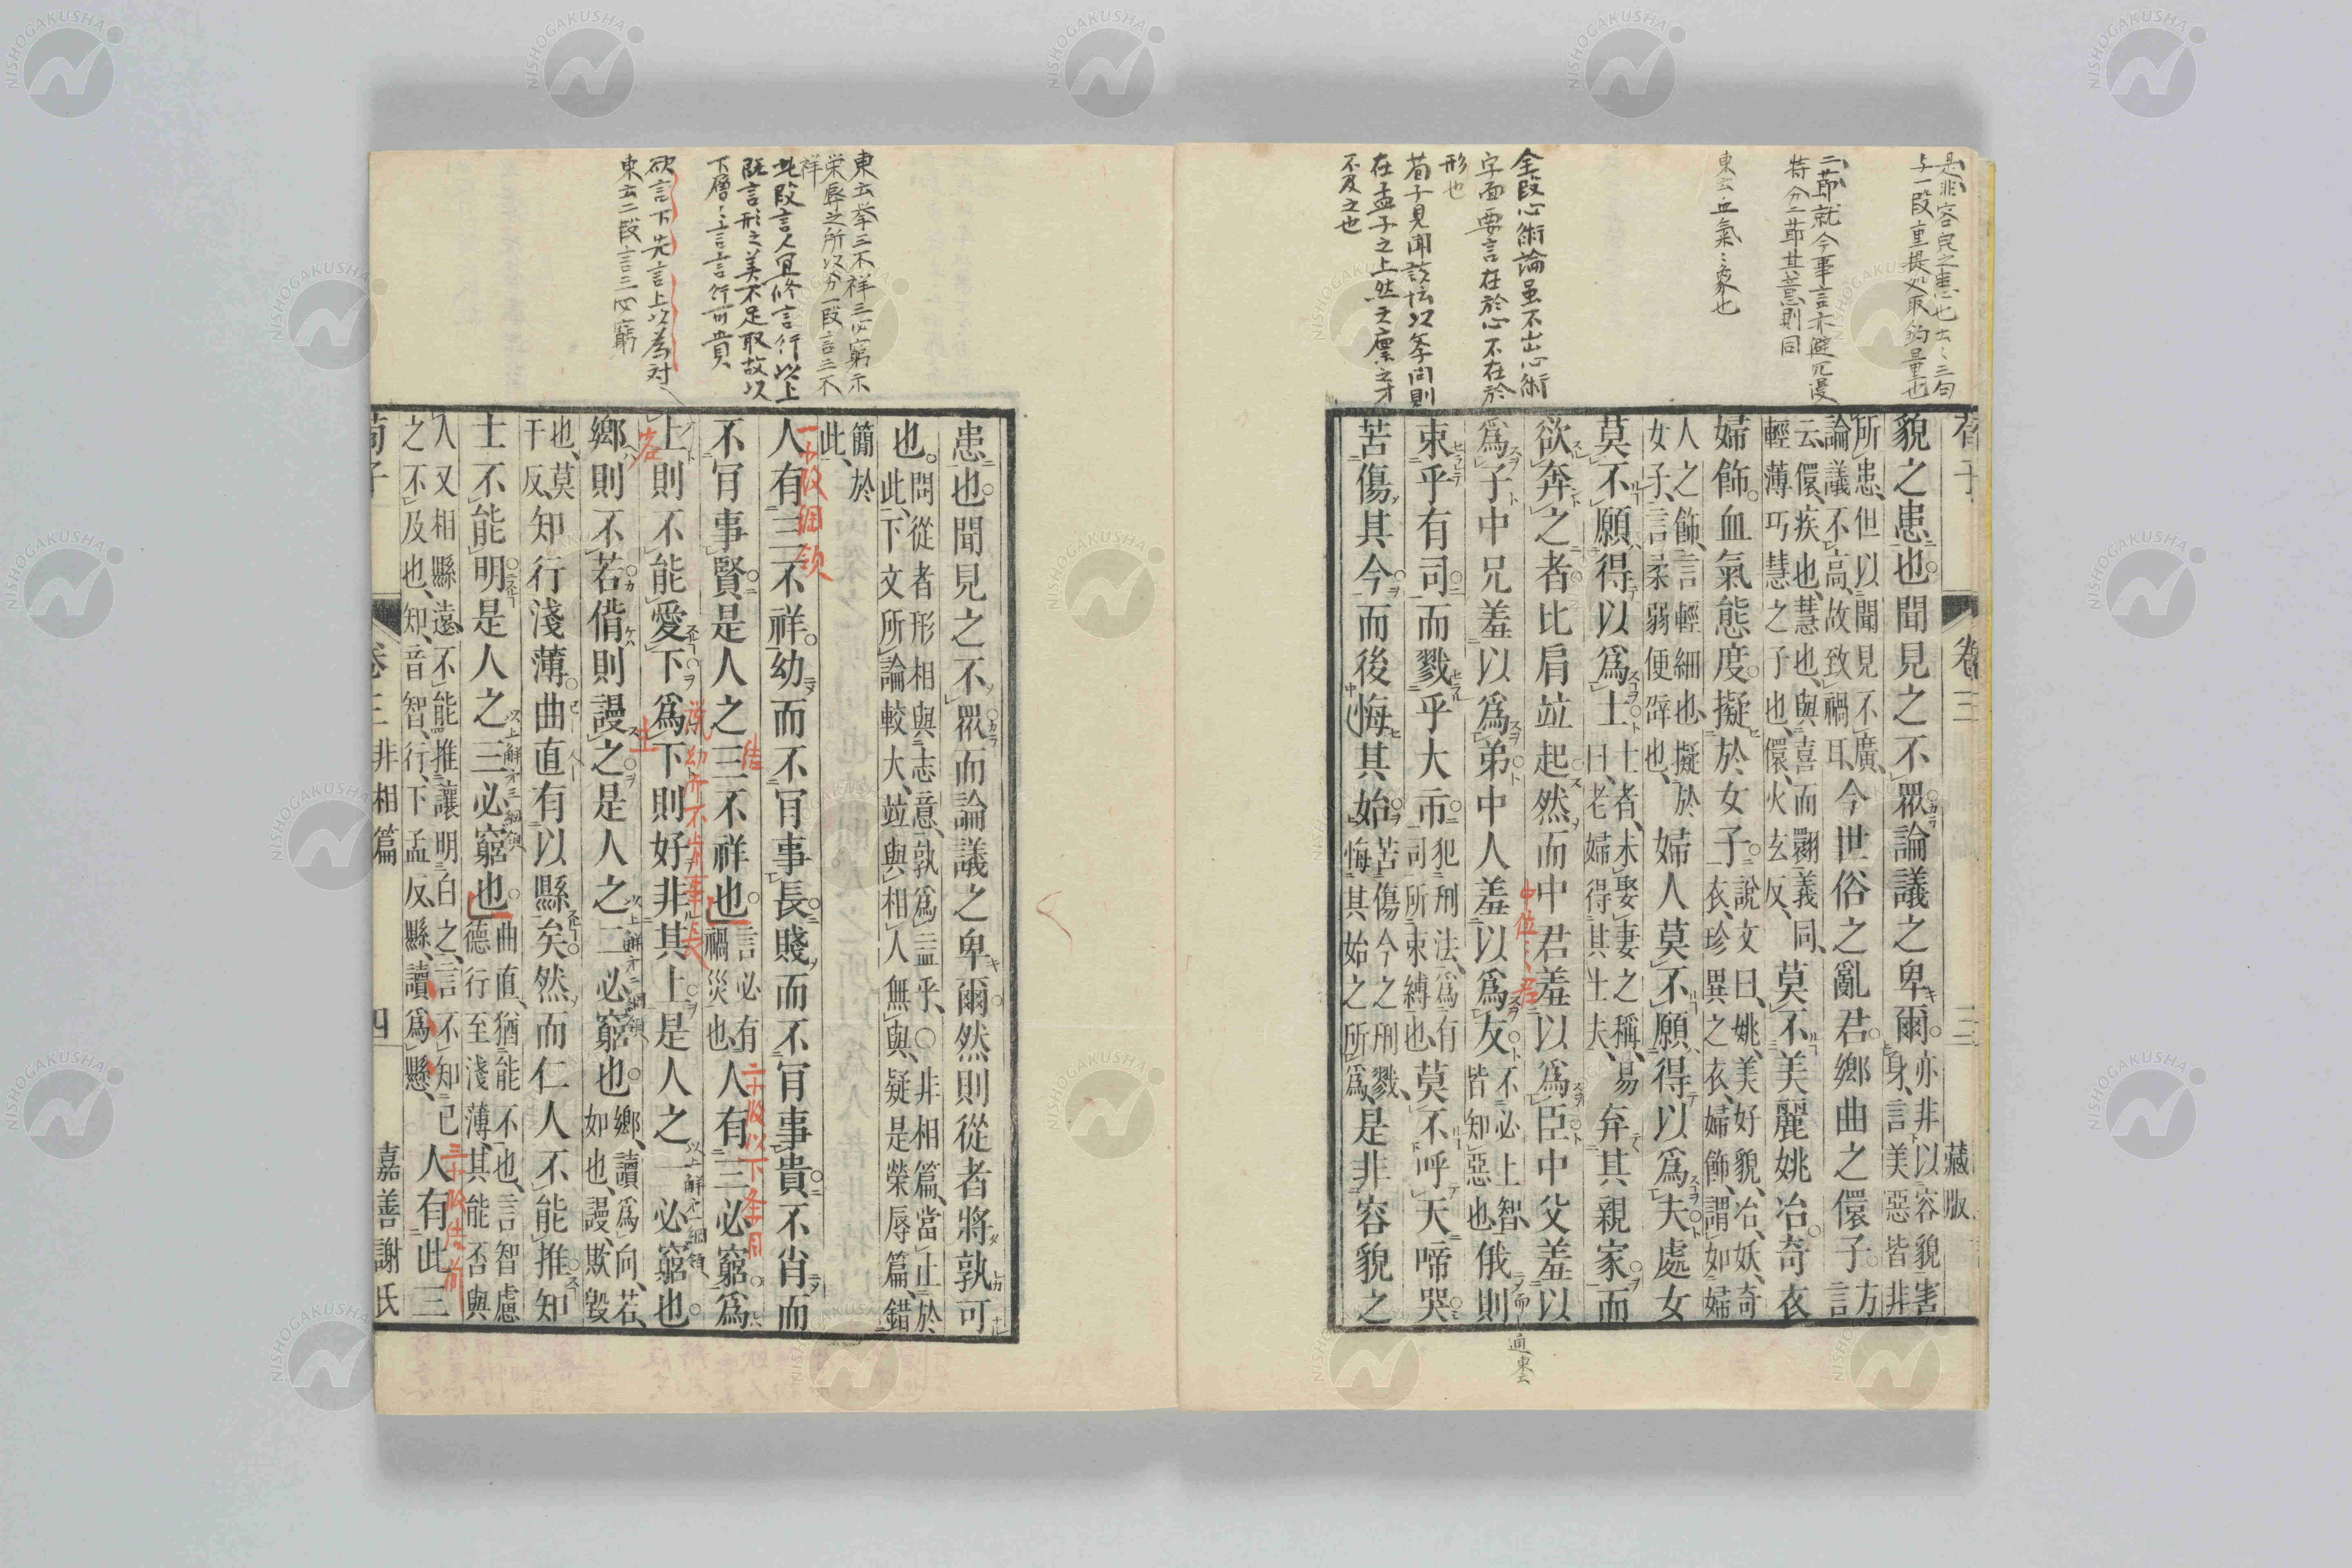 是非容皃之患也云〻三句
与一段重提処取鈞量也
二節就今事言亦避冗漫
特分二節其意則同
東云血氣〻象也
全段心術論虽不出心術
字面要言在於心不在於
形也
荀子見聞該恊以等問則
在孟子之上然天稟之才
不及之也
荀子 卷三 三 藏版
貌之患也聞見之不眾論議之卑爾亦非以容貌害身言美惡皆非
所患但以聞見不廣論議不高故致禍耳今世俗之亂君鄉曲之儇子方言
云儇疾也慧也與喜而翾義同輕薄巧慧之子也儇火玄反莫不美麗姚冶奇衣
婦飾血氣態度擬於女子說文曰姚美好貌冶妖奇衣珍異之衣婦飾謂如婦
人之飾言輕細也擬於女子言柔弱便辟也婦人莫不願得以爲夫處女
莫不願得以爲士士者未娶妻之稱易曰老婦得其士夫弃其親家而
欲奔之者比肩竝起然而中君羞以爲臣中父羞以
爲子中兄羞以爲弟中人羞以爲友不必上智皆知惡也俄則
束乎有司而戮乎大市犯刑法爲有司所束縛也莫不呼天啼哭
苦傷其今而後悔其始苦傷今之刑戮悔其始之所爲是非容貌之
東云挙三不祥三必窮示
栄辱之所以分一段言三不
祥
此段言人冝修言行以上
既言形之美不足取故以
下層〻言言行可貴
欲言下先言上以為対
東云二段言三必窮
患也聞見之不眾而論議之卑爾然則從者將孰可
也問從者形相與志意孰爲益乎〇非相篇當止於此下文所論較大竝與相人無與疑是榮辱篇錯
簡於此
一小段綱領
人有三不祥幼而不肯事長賤而不肯事貴不肖而
不肯事賢是人之三不祥也言必有禍災也人有三必窮爲
上則不能愛下爲下則好非其上是人之一必窮也
鄉則不若偝則謾之是人之二必窮也鄉讀爲向若如也謾欺毀
也莫干反知行淺薄曲直有以縣矣然而仁人不能推知
士不能明是人之三必窮也曲直猶能不也言智慮德行至淺薄其能否與
人又相縣遠不能推讓明白之言不知已之不及也知音智行下孟反縣讀爲懸人有此三
荀子 卷三 非相篇 四 嘉善謝氏
NISHOGAKUSHA